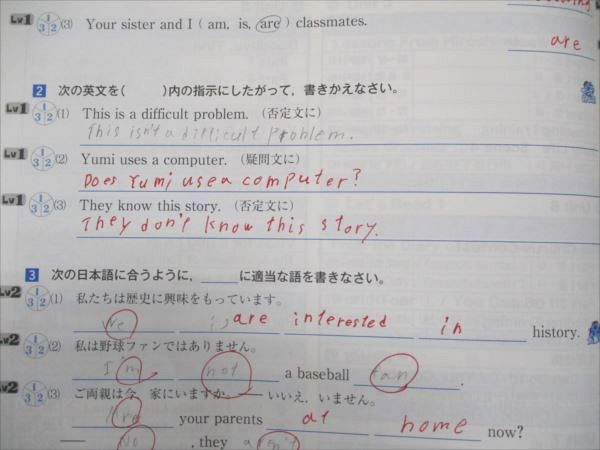 Lv1 1 3 2 (3) Your sister and I ( am, is, are ) classmates.
are
2 次の英文を( )内の指示にしたがって，書きかえなさい。
Lv1 1 3 2 (1) This is a difficult problem. (否定文に)
This isn't a difficult problem.
Lv1 1 3 2 (2) Yumi uses a computer. (疑問文に)
Does Yumi use a computer?
Lv1 1 3 2 (3) They know this story. (否定文に)
They don't know this story.
3 次の日本語に合うように，____に適当な語を書きなさい。
Lv2 1 3 2 (1) 私たちは歴史に興味をもっています。
We is are interested in history.
Lv2 1 3 2 (2) 私は野球ファンではありません。
I'm not a baseball fan.
Lv2 1 3 2 (3) ご両親は今，家にいますか。── いいえ，いません。
Are your parents at home now?
── No, they aren't